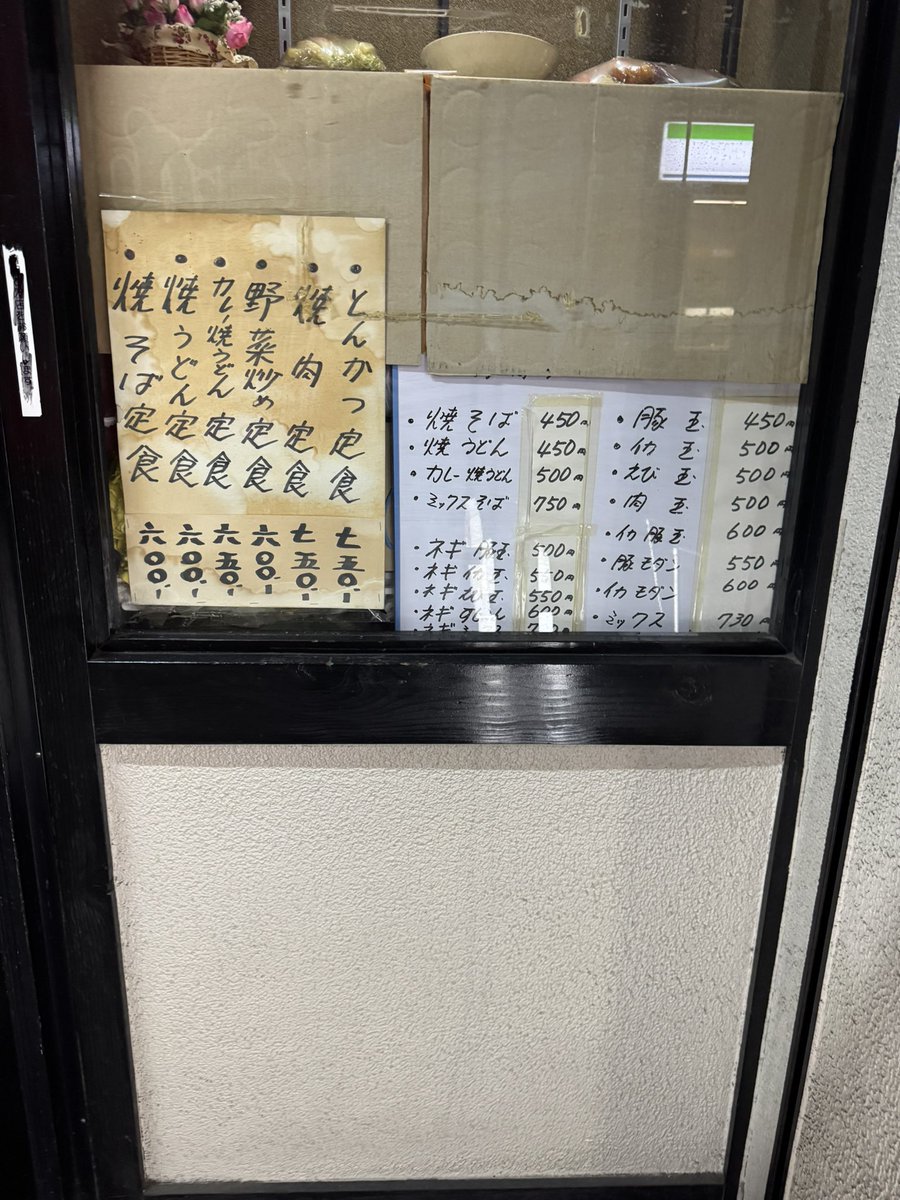 ・とんかつ定食 七五〇、
・焼肉定食 七五〇、
・野菜炒め定食 六〇〇、
・カレー焼うどん定食 六五〇、
・焼うどん定食 六〇〇、
・焼そば定食 六〇〇、
・焼そば 450円
・焼うどん 450円
・カレー焼うどん 500円
・ミックスそば 750円
・ネギ豚玉 500円
・ネギイカ玉 550円
・ネギえび玉 550円
・ネギすじこん 600円
・豚玉 450円
・イカ玉 500円
・えび玉 500円
・肉玉 500円
・イカ豚玉 600円
・豚モダン 550円
・イカモダン 600円
・ミックス 730円